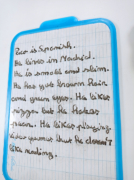 Paco is Spanish.
He lives in Madrid.
He is small and slim.
He has got brown hair
and green eyes. He likes
pizza but he hates
He likes playing
video games but he doesn't
like reading.